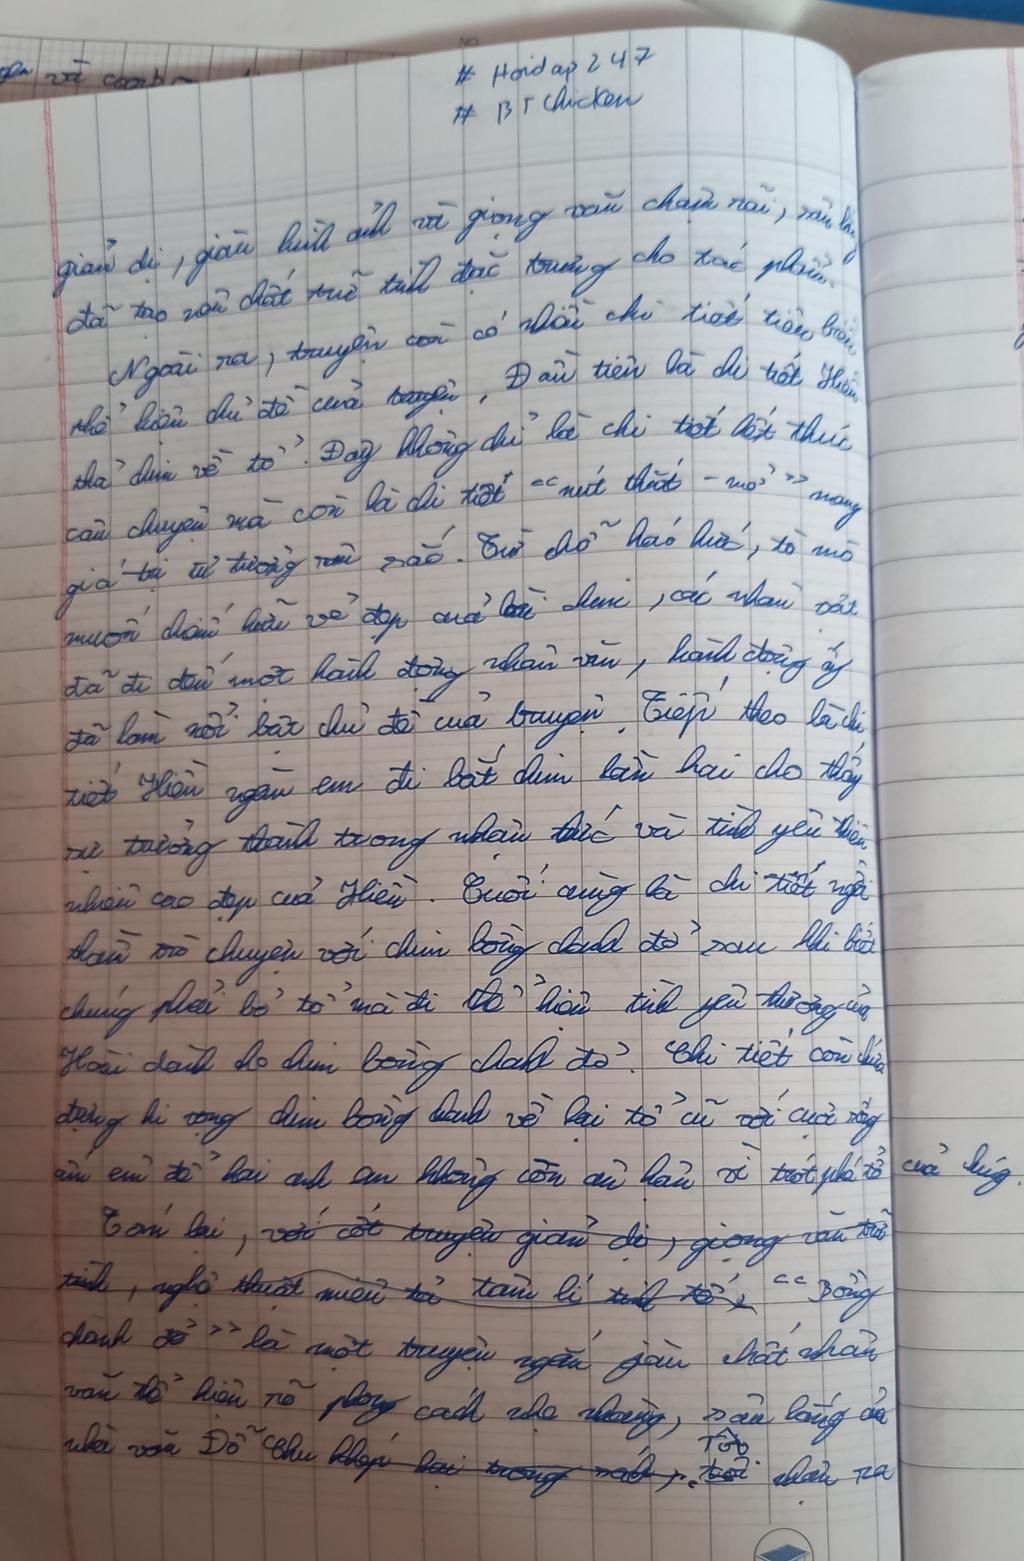 và
# Hoidap247
# BTChicken
giản dị, giàu hình ảnh và giọng văn chậm rãi, sâu lắng
đã tạo nên chất trữ tình đặc trưng cho tác phẩm.
Ngoài ra, truyện còn có nhiều chi tiết tiêu biểu
thể hiện chủ đề của truyện. Đầu tiên là chi tiết Hiên
thả chim về tổ. Đây không chỉ là chi tiết kết thúc
câu chuyện mà còn là chi tiết "nút thắt - mở" mang
giá trị tư tưởng sâu sắc. Từ chỗ háo hức, tò mò
muốn chiếm hữu vẻ đẹp của bầy chim, các nhân vật
đã đi đến một hành động nhân văn, hành động ấy
đã làm nổi bật chủ đề của truyện. Tiếp theo là chi
tiết Hiên ngăn em đi bắt chim lần hai cho thấy
sự trưởng thành trong nhận thức và tình yêu thiên
nhiên cao đẹp của Hiên. Cuối cùng là chi tiết ngồi
thầm trò chuyện với chim bồng chanh đỏ sau khi biết
chúng phải bỏ tổ mà đi thể hiện tình yêu thương của
Hoài dành cho chim bồng chanh đỏ. Chi tiết còn chứa
đựng hi vọng chim bồng chanh về lại tổ cũ với cuộc sống
êm đềm để hai anh em không còn ân hận vì trót phá tổ của chúng.
Tóm lại, với cốt truyện giản dị, giọng văn trữ
tình, nghệ thuật miêu tả tâm lí tinh tế, "Bồng
chanh đỏ" là một truyện ngắn giàu chất nhân
văn thể hiện rõ phong cách nhẹ nhàng, sâu lắng của
nhà văn Đỗ Chu khép lại trang sách, tôi Tôi nhận ra